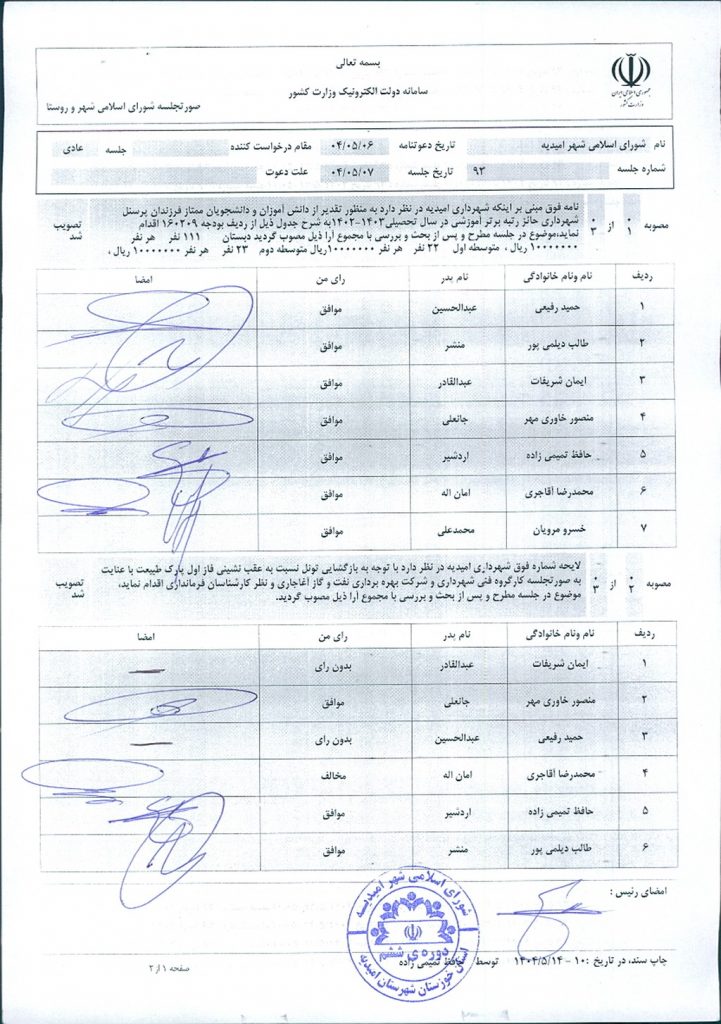 بسمه تعالی
سامانه دولت الکترونیک وزارت کشور
جمهوری اسلامی ایران
وزارت کشور
صورتجلسه شورای اسلامی شهر و روستا
نام شورای اسلامی شهر امیدیه تاریخ دعوتنامه ۰۴/۰۵/۰۶ مقام درخواست کننده جلسه عادی
شماره جلسه ۹۳ تاریخ جلسه ۰۴/۰۵/۰۷ علت دعوت
مصوبه ۰۱ از ۰۳
نامه فوق مبنی بر اینکه شهرداری امیدیه در نظر دارد به منظور تقدیر از دانش آموزان و دانشجویان ممتاز فرزندان پرسنل
شهرداری حائز رتبه برتر آموزشی در سال تحصیلی۱۴۰۳-۱۴۰۲به شرح جدول ذیل از ردیف بودجه ۱۶۰۲۰۹ اقدام
نماید،موضوع در جلسه مطرح و پس از بحث و بررسی با مجموع آرا ذیل مصوب گردید دبستان ۱۱۱ نفر هر نفر
۱۰۰۰۰۰۰۰ ریال ، متوسطه اول ۲۲ نفر هر نفر ۱۰۰۰۰۰۰۰ریال متوسطه دوم ۲۳ نفر هر نفر ۱۰۰۰۰۰۰۰ ریال ،
تصویب شد
ردیف نام ونام خانوادگی نام پدر رای من امضا
۱ حمید رفیعی عبدالحسین موافق
۲ طالب دیلمی پور منشر موافق
۳ ایمان شریفات عبدالقادر موافق
۴ منصور خاوری مهر جانعلی موافق
۵ حافظ تمیمی زاده اردشیر موافق
۶ محمدرضا آقاجری امان اله موافق
۷ خسرو مرویان محمدعلی موافق
مصوبه ۰۲ از ۰۳
لایحه شماره فوق شهرداری امیدیه در نظر دارد با توجه به بازگشایی تونل نسبت به عقب نشینی فاز اول پارک طبیعت با عنایت
به صورتجلسه کارگروه فنی شهرداری و شرکت بهره برداری نفت و گاز آغاجاری و نظر کارشناسان فرمانداری اقدام نماید،
موضوع در جلسه مطرح و پس از بحث و بررسی با مجموع آرا ذیل مصوب گردید.
تصویب شد
ردیف نام ونام خانوادگی نام پدر رای من امضا
۱ ایمان شریفات عبدالقادر بدون رای
۲ منصور خاوری مهر جانعلی موافق
۳ حمید رفیعی عبدالحسین بدون رای
۴ محمدرضا آقاجری امان اله مخالف
۵ حافظ تمیمی زاده اردشیر موافق
۶ طالب دیلمی پور منشر موافق
امضای رئیس :
شورای اسلامی شهر امیدیه
دوره ی ششم
استان خوزستان شهرستان امیدیه
چاپ سند، در تاریخ :۱۰ - ۱۴۰۴/۵/۱۴ توسط حافظ تمیمی زاده
صفحه ۱ از ۲